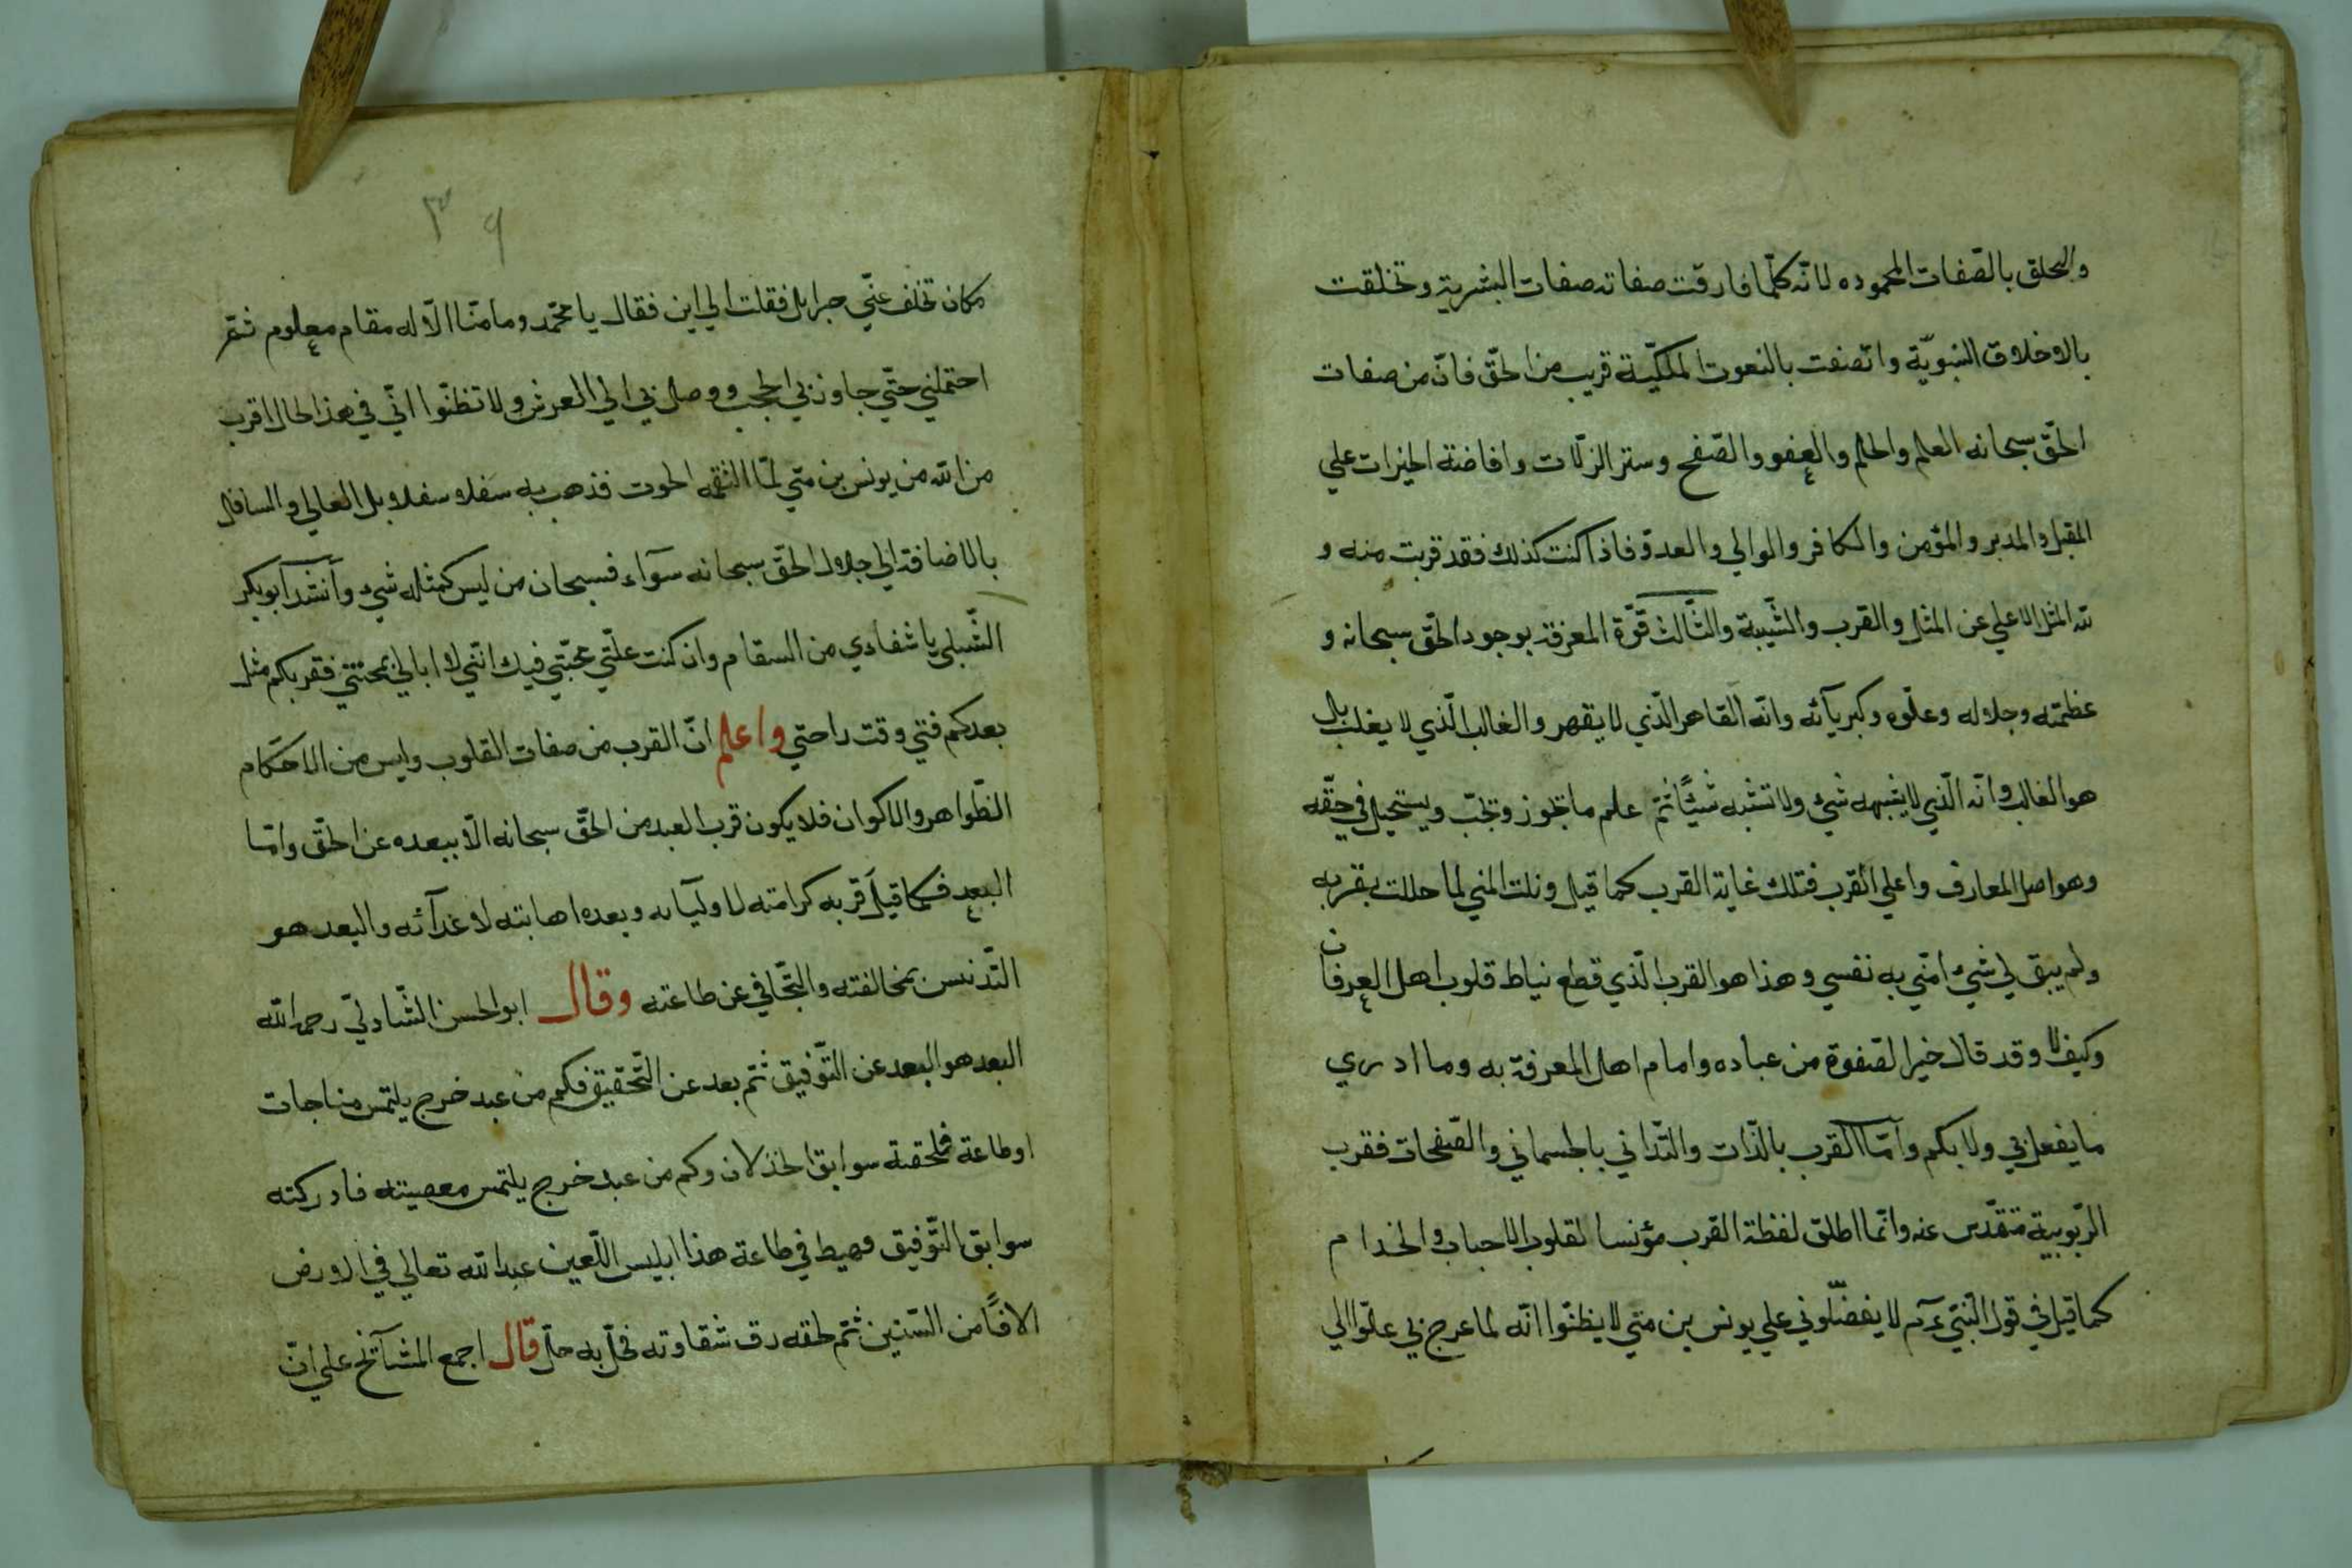 والتخلق بالصّفات المحموده لانّه كلّما فارقت صفاته صفات البشرية وتخلقت
بالاخلاق النبويّة واتّصفت بالنعوت الملكيّة قريب من الحقّ فانّ من صفات
الحقّ سبحانه العلم والحلم والعفو والصّفح وستر الزلّات وافاضة الخيرات علي
المقبل والمدبر والمؤمن والكافر والموالي والعدوّ فاذا كنت كذلك فقد قربت منه و
لله المثل الاعلي عن المثل والقرب والشّيبة والثّالث قوّة المعرفة بوجود الحقّ سبحانه و
عظمته وجلاله وعلّوه وكبريآئه وانّه القاهر الّذي لا يقهر والغالب الّذي لا يغلب بل
هو الغالب وانّه الّذي لا يشبهه شيء ولا تشبه شيئًا ثمّ علم ما تجوز وتجبّ ويستحيل في حقّه
وهو اصل المعارف واعلي القرب فتلك غاية القرب كما قيل ونلت المني لما حللت بقربه
ولم يبق لي شيء امنّي به نفسي وهذا هو القرب الّذي قطع نياط قلوب اهل العرفان
وكيف لا وقد قال خير الصّفوة من عباده وامام اهل المعرفة به وما ادري
ما يفعل بي ولا بكم وامّا القرب بالذّات والتّداني بالجسماني والصّفحات فقرب
الرّبوبية متقدّس عنه وانّما اطلق لفظة القرب مؤنسا لقلوب الاحباب والخدام
كما قيل في قول النّبيّ عم لا يفضّلوني علي يونس بن متي لا يظنّوا انّه لما عرج بي علّوا الي
٣٩
مكان تخلف عنّي جبرايل فقلت الي اين فقال يا محمّد وما منّا الّا له مقام معلوم ثمّ
احتملني حتّي جاوز بي الحجب ووصل بي الي العرش ولا تظنّوا انّي في هذا الحال اقرب
من الله من يونس بن متي لمّا التقمه الحوت فذهب به سفلا سفلا بل العالي والسافل
بالاضافة الي جلال الحقّ سبحانه سوآء فسبحان من ليس كمثله شيء وأنشد أبو بكر
الشّبلي يا شفادي من السقام وان كنت علّتي محبّتي فيك انّني لا ابالي بمحنتي فقربكم مثل
بعدكم فتي وقت راحتي واعلم انّ القرب من صفات القلوب وليس من الاحكام
الظّواهر والاكوان فلا يكون قرب العبد من الحقّ سبحانه الّا ببعده عن الحقّ وامّا
البعد فكما قيل قربه كرامته لاوليآئه وبعده اهابته لاعدآئه والبعد هو
التّدنس بمخالفته والتّجافي عن طاعته وقال ابو الحسن الشّادليّ رحمه الله
البعد هو البعد عن التّوفيق ثمّ بعد عن التّحقيق فكم من عبد خرج يلتمس مناجات
او طاعة فلحقته سوابق الخذلان وكم من عبد خرج يلتمس معصيته فادركته
سوابق التّوفيق فهبط في طاعة هذا ابليس اللّعين عبد الله تعالي في الارض
الافًا من السّنين ثمّ لحقه رق شقاوته فحلّ به حلّ قال اجمع المشآئخ علي انّ